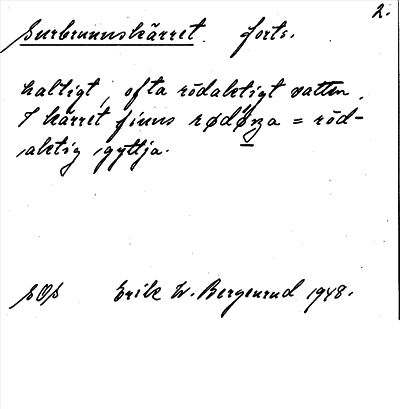 2.
Surbrunnskärret. forts.
haltigt, ofta rödaktigt vatten.
I kärret finns rødørza = röd-
aktig gyttja.
SOS Erik W. Bergenrud 1948.